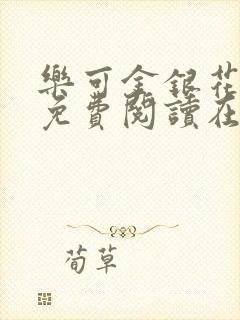 樂可金銀花
免費閱讀在
荀草